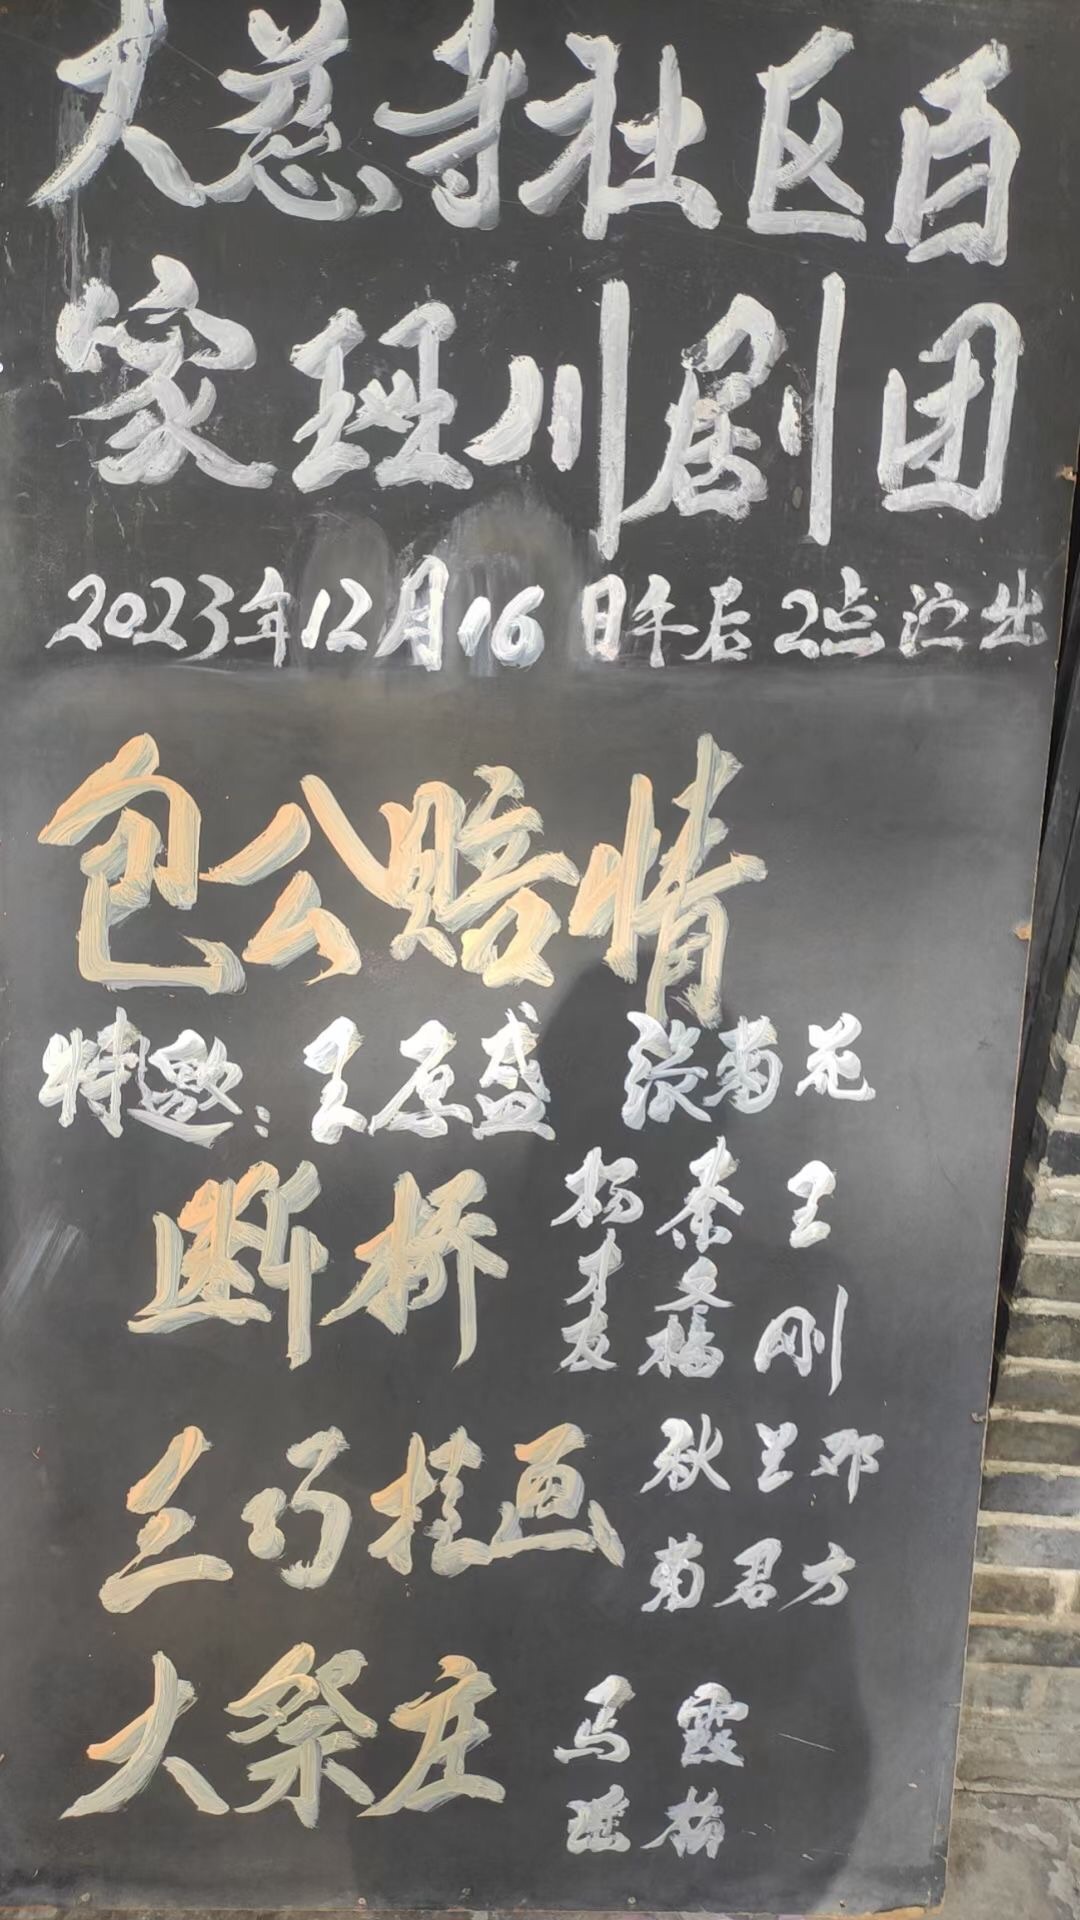 大慈寺社区百
家班川剧团
2023年12月16日午后2点演出
包公赔情
特邀：王原盛 淡菊花
断桥
杨友
秦文
王刚
三巧挂画
秋菊
兰君
邓方
大祭庄
马瑶
霞梅